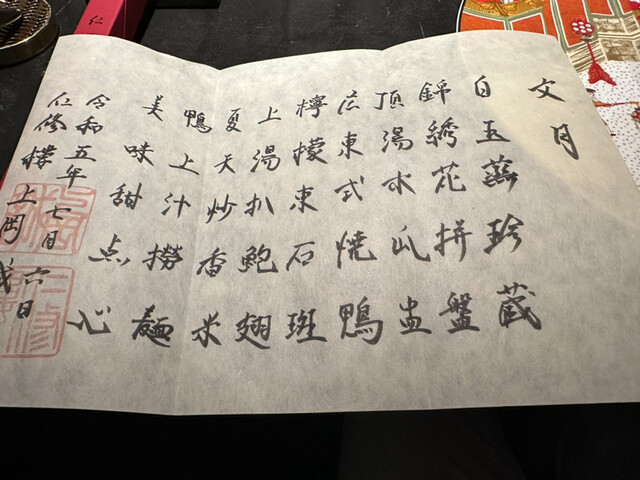 文月
白玉燕珍蔵
錦綉花拼盤
頂湯水瓜盅
広東式焼鴨
檸檬東石斑
上湯扒鮑翅
夏天炒香米
鴨上汁撈麺
美味甜点心
令和五年七月六日
仁修樓 上岡 誠
仁